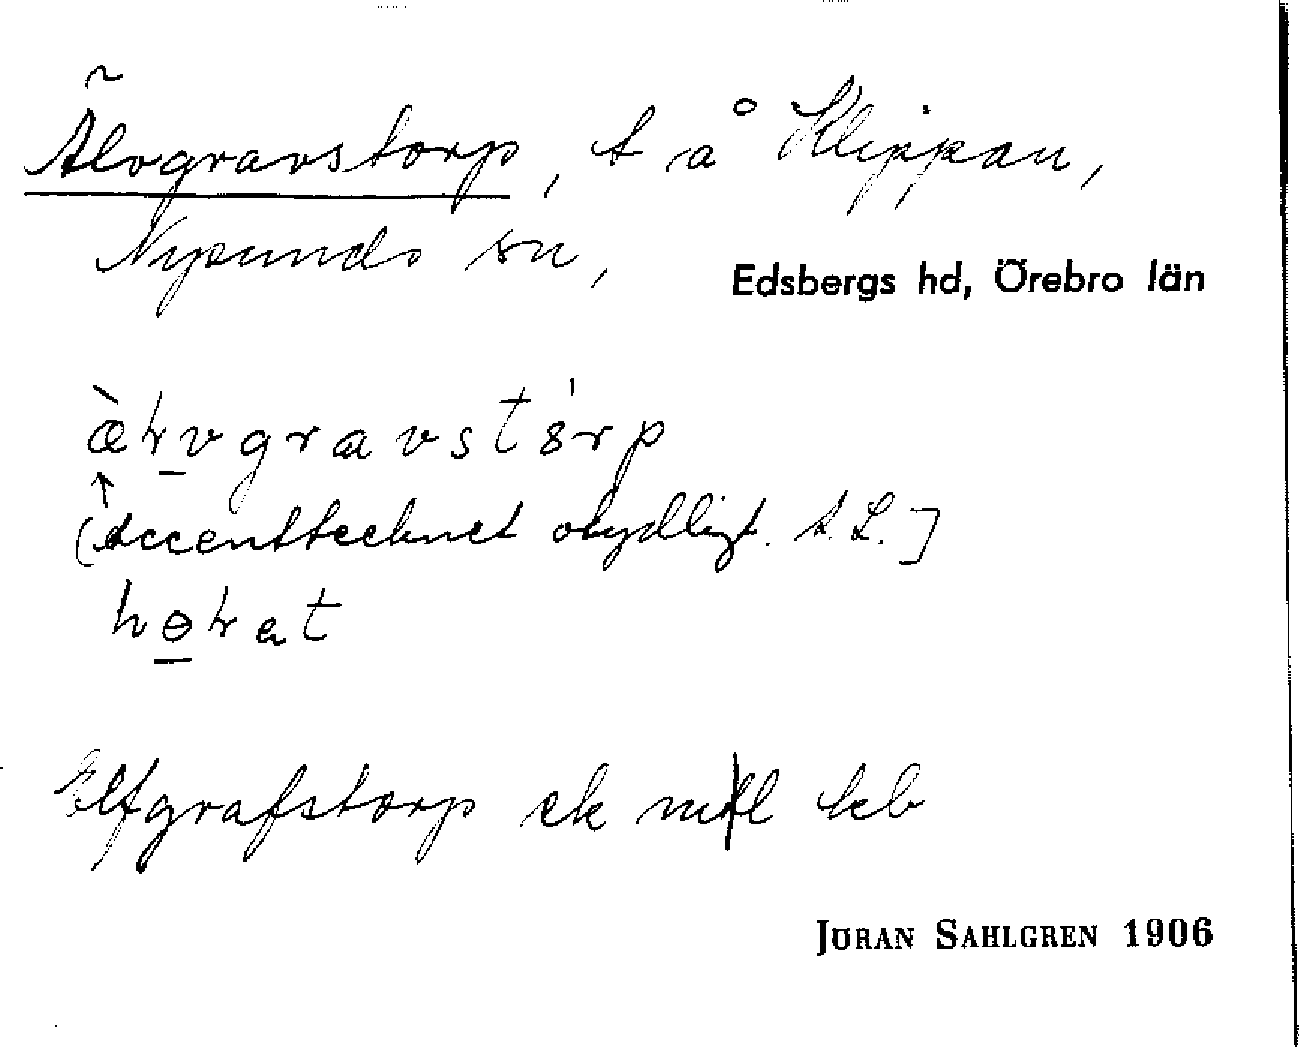 Älvgravstorp, t å Klippan,
Nysunds sn,
Edsbergs hd, Örebro län
[Accenttecknet otydligt. A.L.]
Elfgrafstorp ek
JÖRAN SAHLGREN 1906